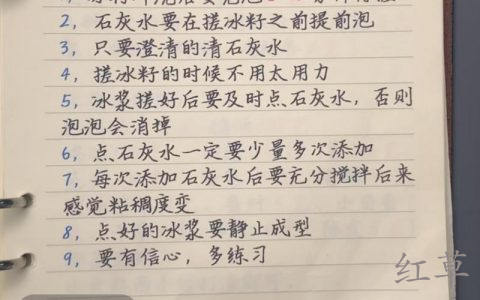 2，石灰水要在搓冰籽之前提前泡
3，只要澄清的清石灰水
4，搓冰籽的时候不用太用力
5，冰浆搓好后要及时点石灰水，否则
泡泡会消掉
6，点石灰水一定要少量多次添加
7，每次添加石灰水后要充分搅拌后来
感觉粘稠度变
8，点好的冰浆要静止成型
9，要有信心，多练习
红草